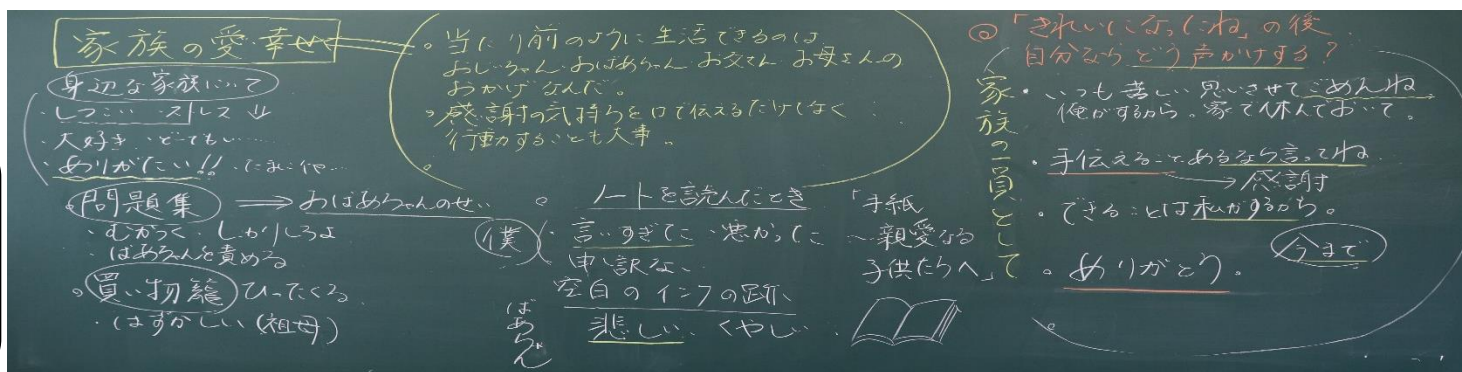 家族の愛・幸せ
身辺な家族について
・しつこい・ストレス ↓
・大好き・とても…
・ありがたい!!・たまにや…
。問題集 ⇒ おばあちゃんのせい
・むかつく・しかりしろよ
・ばあちゃんを責める
。買い物籠 ひったくる
・はずかしい (祖母)
。当たり前のように生活できるのは、
おじいちゃん・おばあちゃん お父さん お母さんの
おかげなんだ。
。感謝の気持ちを口で伝えるだけじなく
行動することも大事。
。ノートを読んだとき
僕
・言いすぎてた・悪かった
申し訳ない
空白のインクの跡
ばあちゃん
悲しい くやしい
「手紙
~親愛なる
子供たちへ」
◎「きれいになったね」の後
自分ならどう声かけする?
家族の一員として
・いつも苦しい思いさせてごめんね
俺がするから。家で休んでおいて。
・手伝えることあるなら言ってね
→感謝
・できることは私がするから。
今まで
。ありがとう。